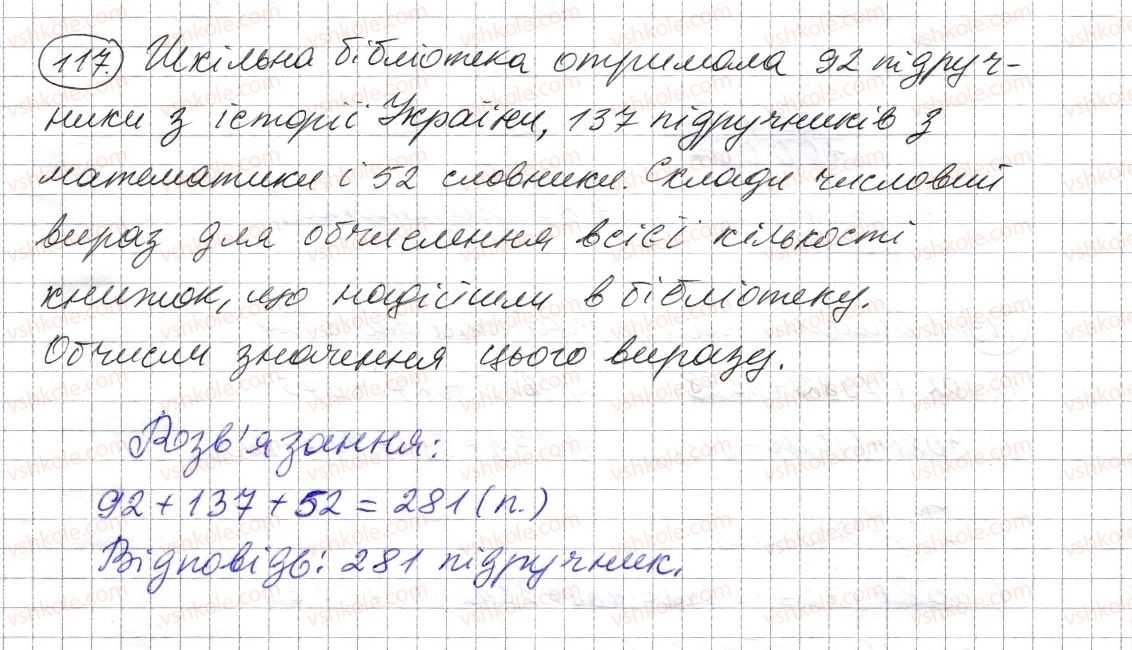 117. Шкільна бібліотека отримала 92 підруч-
ники з історії України, 137 підручників з
математики і 52 словники. Склади числовий
вираз для обчислення всієї кількості
книжок, що надійшли в бібліотеку.
Обчисли значення цього виразу.
Розв'язання:
92 + 137 + 52 = 281 (п.)
Відповідь: 281 підручник.